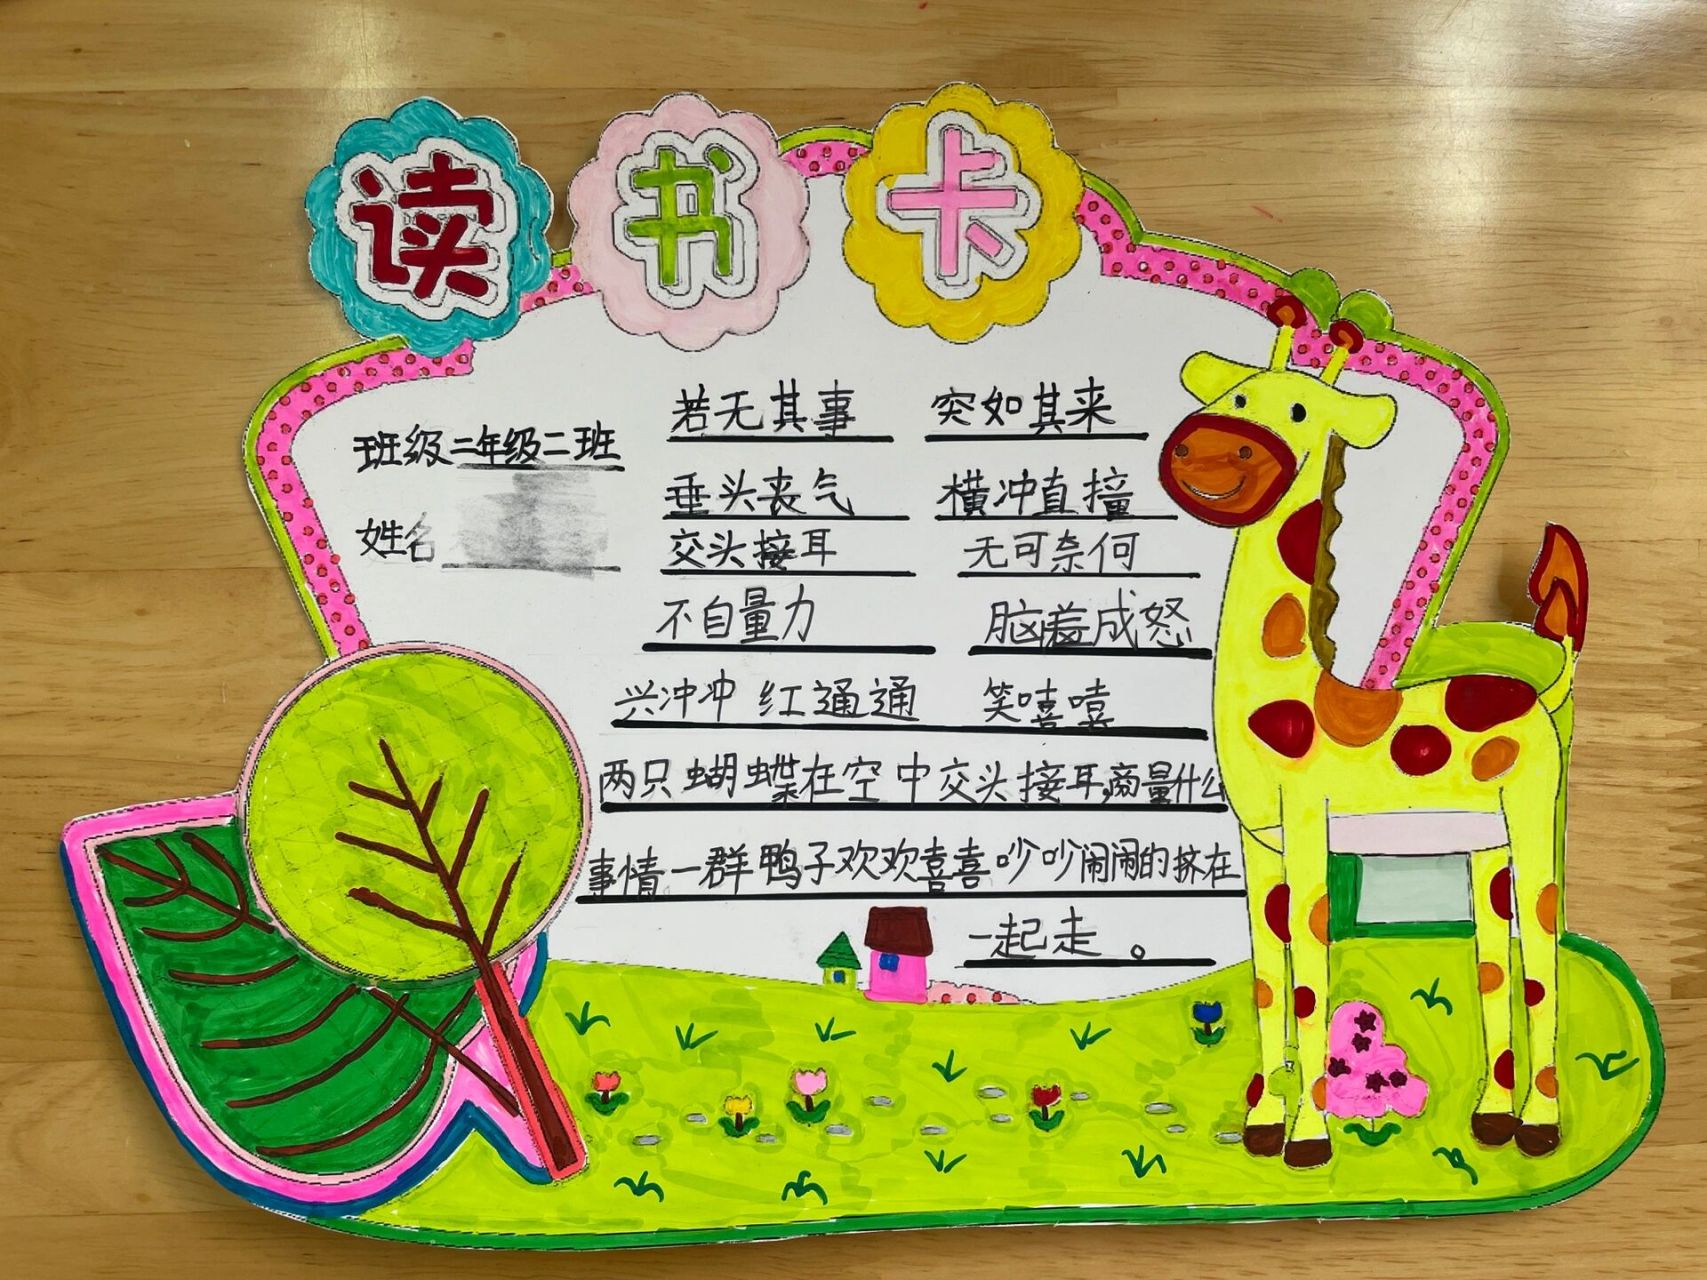 读书卡
班级二年级二班
姓名
若无其事 突如其来
垂头丧气 横冲直撞
交头接耳 无可奈何
不自量力 脑羞成怒
兴冲冲 红通通 笑嘻嘻
两只蝴蝶在空中交头接耳,商量什么
事情.一群鸭子欢欢喜喜吵吵闹闹的挤在
一起走。